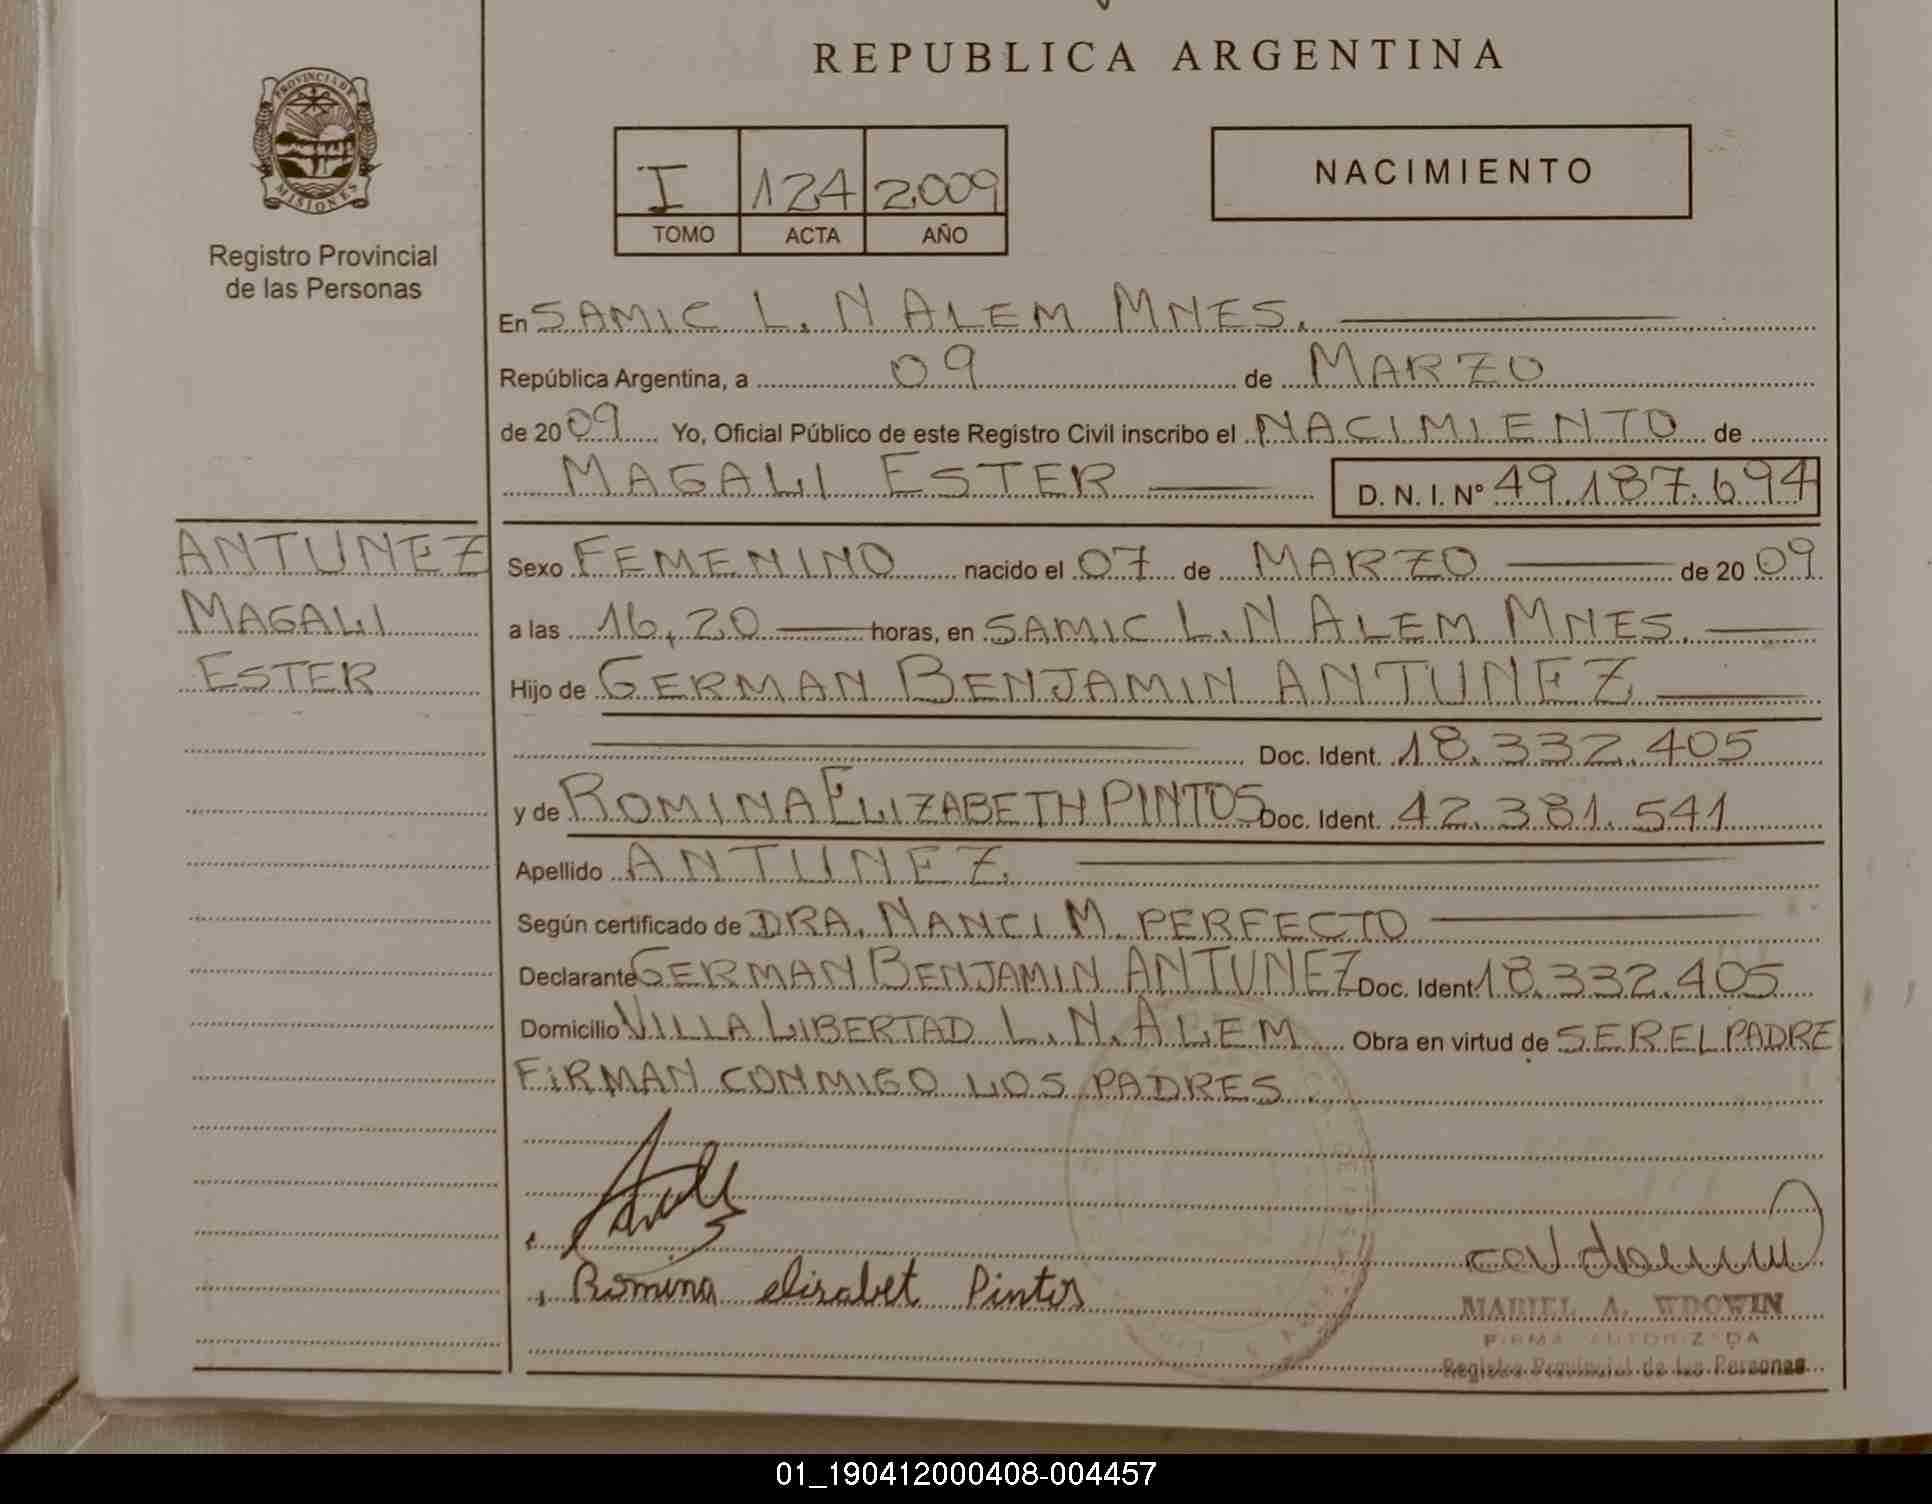 REPUBLICA ARGENTINA
PROVINCIA DE
MISIONES
Registro Provincial
de las Personas
I 124 2009
TOMO ACTA AÑO
NACIMIENTO
En SAMIC L. N ALEM MNES.
República Argentina, a 09 de MARZO
de 2009 Yo, Oficial Público de este Registro Civil inscribo el NACIMIENTO de
MAGALI ESTER D. N. I. Nº 49.187.694
ANTUNEZ
MAGALI
ESTER
Sexo FEMENINO nacido el 07 de MARZO de 2009
a las 16,20 horas, en SAMIC L. N ALEM MNES.
Hijo de GERMAN BENJAMIN ANTUNEZ
Doc. Ident. 18.332.405
y de ROMINA ELIZABETH PINTOS Doc. Ident. 42.381.541
Apellido ANTUNEZ.
Según certificado de DRA. NANCI M. PERFECTO
Declarante GERMAN BENJAMIN ANTUNEZ Doc. Ident. 18.332.405
Domicilio VILLA LIBERTAD L. N. ALEM Obra en virtud de SER EL PADRE
FIRMAN CONMIGO LOS PADRES.
Romina elisabet Pintos
MARIEL A. WDOWIN
FIRMA AUTORIZADA
Registro Provincial de las Personas
01_190412000408-004457